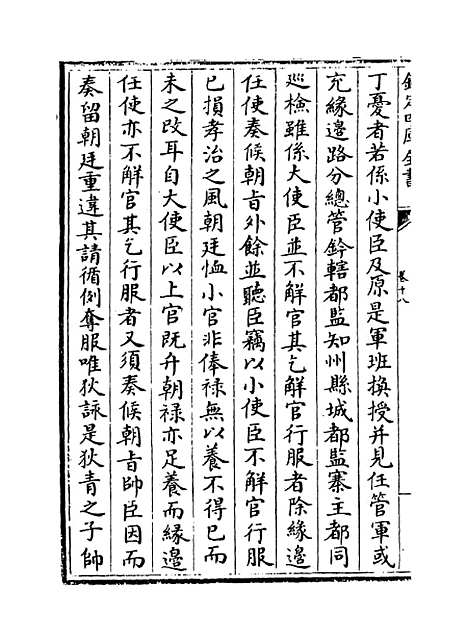 欽定四庫全書
卷十八
丁憂者若係小使臣及原是軍班換授并見任管軍或
充緣邊路分總管鈐轄都監知州縣城都監寨主都同
巡檢雖係大使臣並不解官其乞解官行服者除緣邊
任使奏候朝旨外餘並聽臣竊以小使臣不解官行服
已損孝治之風朝廷恤小官非俸祿無以養不得已而
未之改耳自大使臣以上官既升朝祿亦足養而緣邊
任使亦不解官其乞行服者又須奏候朝旨帥臣因而
奏留朝廷重違其請循例奪服唯狄詠是狄青之子帥